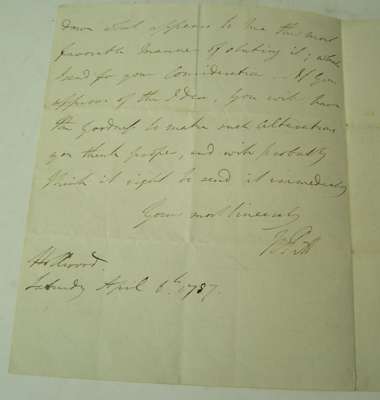 down what appears to me the most
favorable manner of stating it; which
I send for your Consideration. If you
approve of the Idea, you will have
the goodness to make such alterations
you think proper, and will probably
think it right to send it immediately
Yours most Sincerely
W Pitt
Hollwood.
Saturday April 6th 1787.